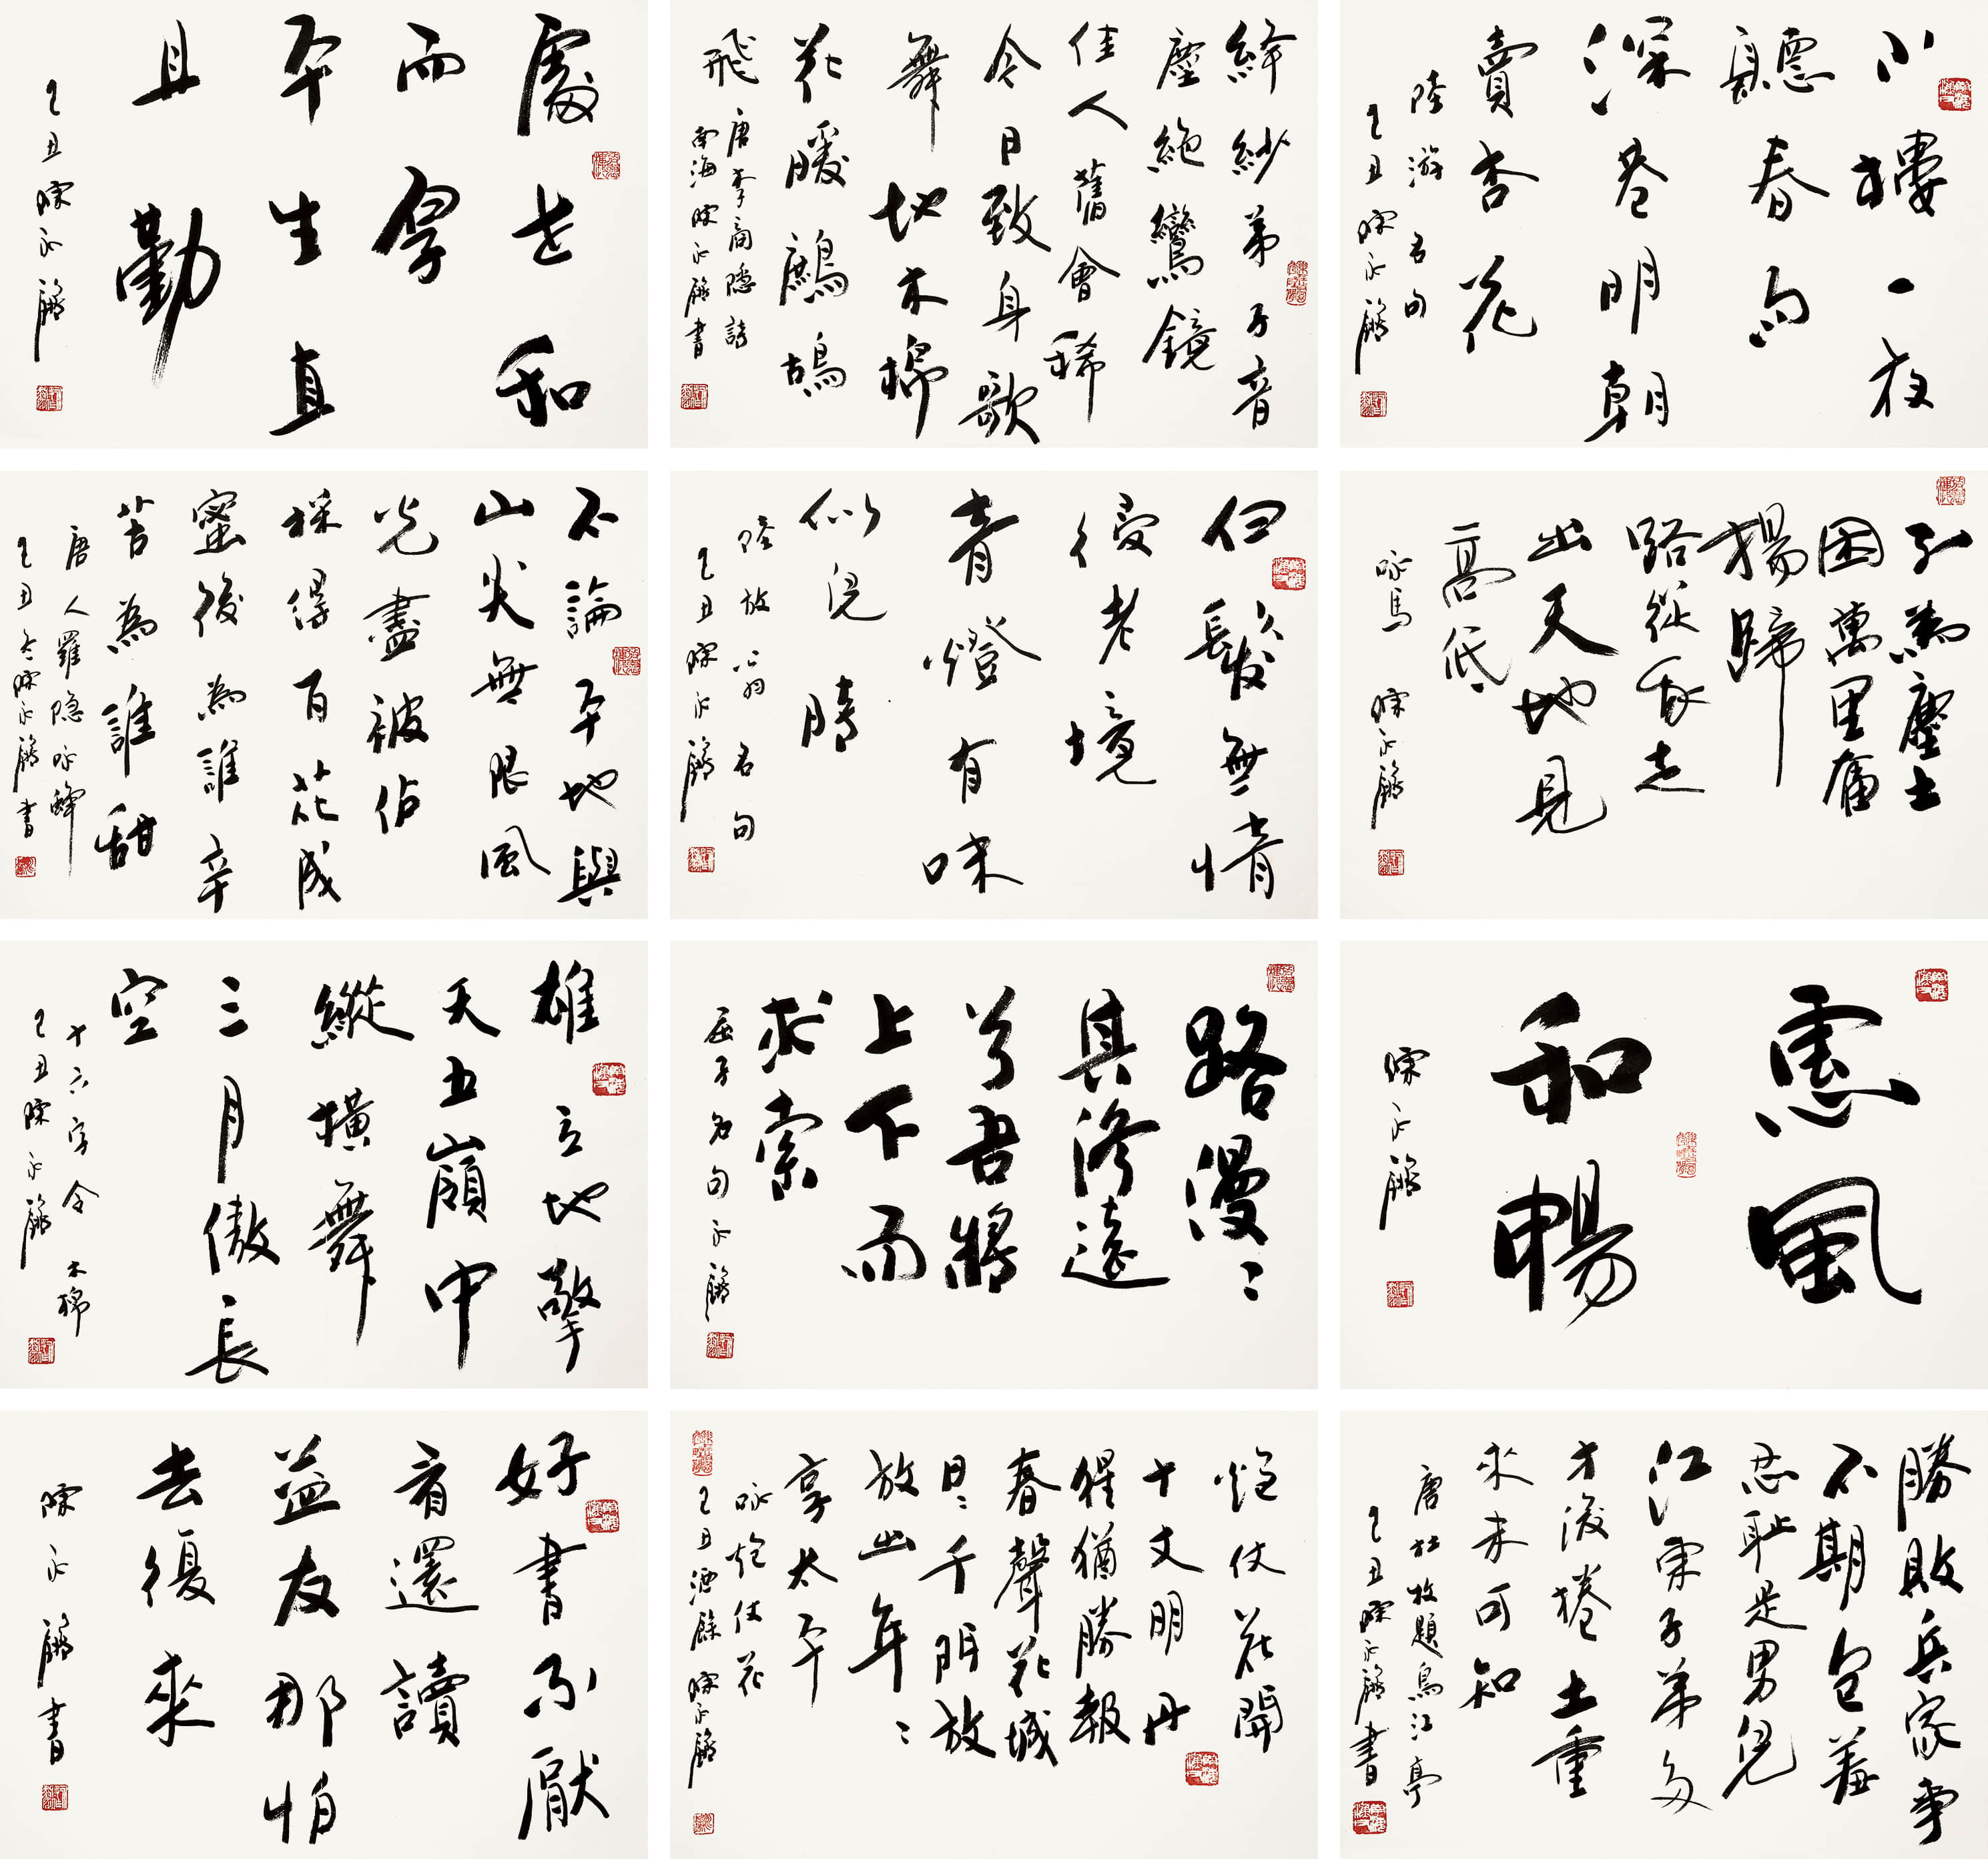 小樓一夜
聽春雨
深巷明朝
賣杏花
陸游名句
己丑陳永鏘
絳紗弟子音
塵絕鸞鏡
佳人舊會稀
今日致身歌
舞地木棉
花暖鷓鴣
飛 唐李商隱詩
南海陳永鏘書
處世和
而厚
平生直
且勤
己丑陳永鏘
不為塵土
困萬里奮
揚蹄
路從我走
出天地見
高低
詠馬 陳永鏘
白髮無情
侵老境
青燈有味
似兒時
陸放翁名句
己丑陳永鏘
不論平地與
山尖無限風
光盡被佔
採得百花成
蜜後為誰辛
苦為誰甜
唐人羅隱詠蜂
己丑冬陳永鏘書
惠風
和暢
陳永鏘
路漫〻
其修遠
兮吾將
上下而
求索
屈子名句永鏘
雄立地擎
天五嶺中
縱橫舞
三月傲長
空
十六字令 木棉
己丑陳永鏘
勝敗兵家事
不期包羞
忍恥是男兒
江東子弟多
才俊捲土重
來未可知
唐杜牧題烏江亭
己丑陳永鏘書
炮仗花開
十丈明丹
猩猶勝報
春聲花城
日〻千門放
放出年〻
享太平
詠炮仗花
己丑酒餘陳永鏘
好書不厭
看還讀
益友那怕
去復來
陳永鏘書